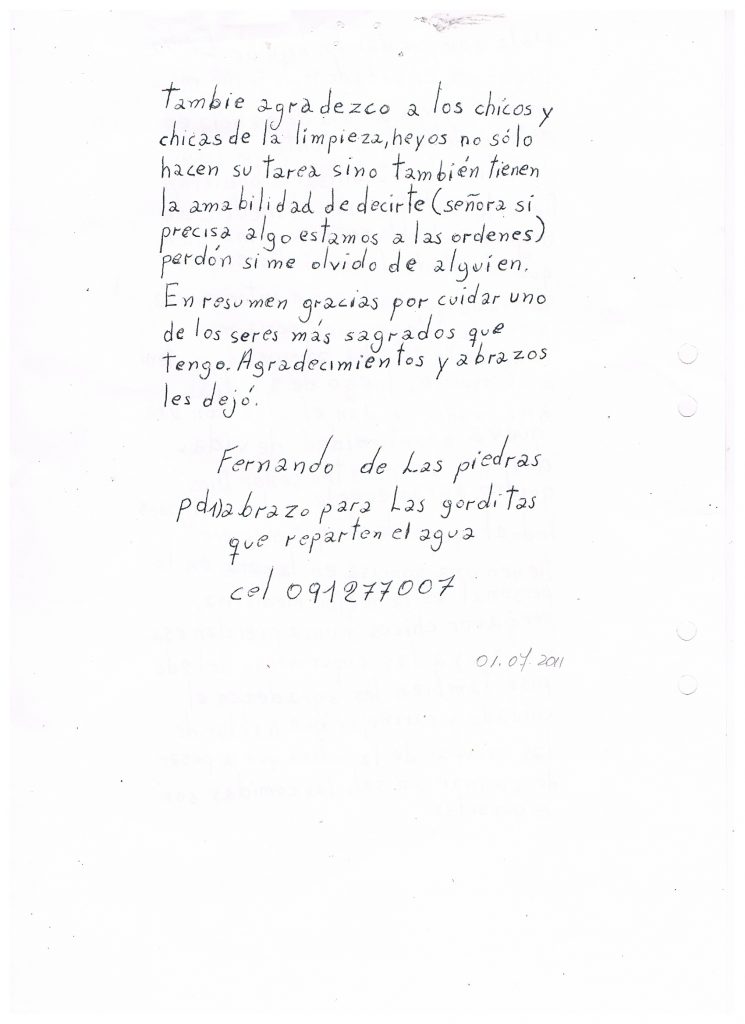 Tambie agradezco a los chicos y
chicas de la limpieza, heyos no sólo
hacen su tarea sino también tienen
la amabilidad de decirte (señora si
precisa algo estamos a las ordenes)
perdón si me olvido de alguien.
En resumen gracias por cuidar uno
de los seres más sagrados que
tengo. Agradecimientos y abrazos
les dejó.
Fernando de Las piedras
pd1) abrazo para Las gorditas
que reparten el agua
cel 091277007
01.07.2011